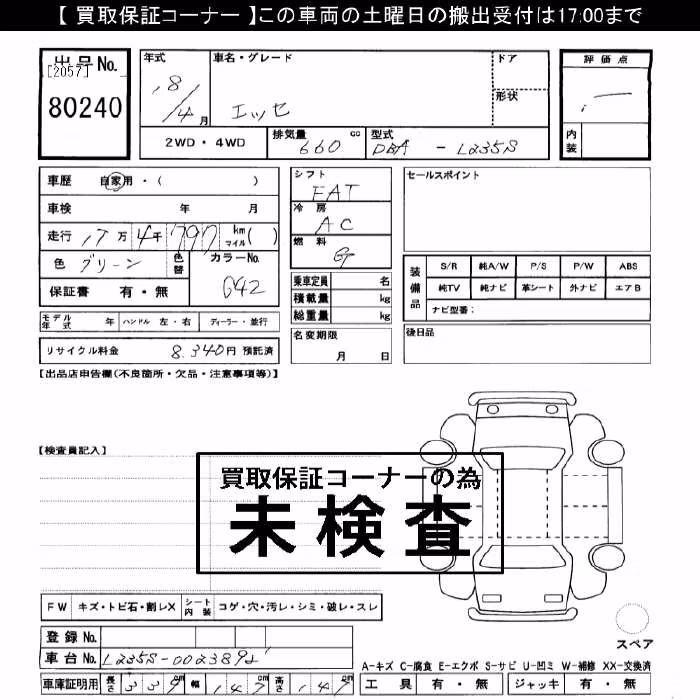 【 買取保証コーナー 】この車両の土曜日の搬出受付は17:00まで
出品No.
[2057]
80240
年式
18/4月
車名・グレード
エッセ
ドア
形状
評価点
内装
2WD・4WD
排気量
660 cc
型式
DBA - L235S
車歴 自家用・( )
車検 年 月
走行 17万 4千 797 km マイル( )
色 グリーン 色替
カラーNo.
G42
保証書 有・無
シフト
FAT
冷房
AC
燃料
G
乗車定員 名
積載量 kg
総重量 kg
セールスポイント
装備品
S/R 純A/W P/S P/W ABS
純TV 純ナビ 革シート 外ナビ エアB
ナビ型番:
モデル年式 年 ハンドル 左・右 ディーラー・並行
リサイクル料金 8,340円 預託済
名変期限
月 日
後日品
【出品店申告欄(不良箇所・欠品・注意事項等)】
【検査員記入】
買取保証コーナーの為
未検査
FW キズ・トビ石・割レX シート内装 コゲ・穴・汚レ・シミ・破レ・スレ
スペア
登録No.
車台No. L235S-
A-キズ C-腐食 E-エクボ S-サビ U-凹ミ W-補修 XX-交換済
車庫証明用 長さ 339cm 幅 147cm 高さ 147cm
工具 有・無 ジャッキ 有・無